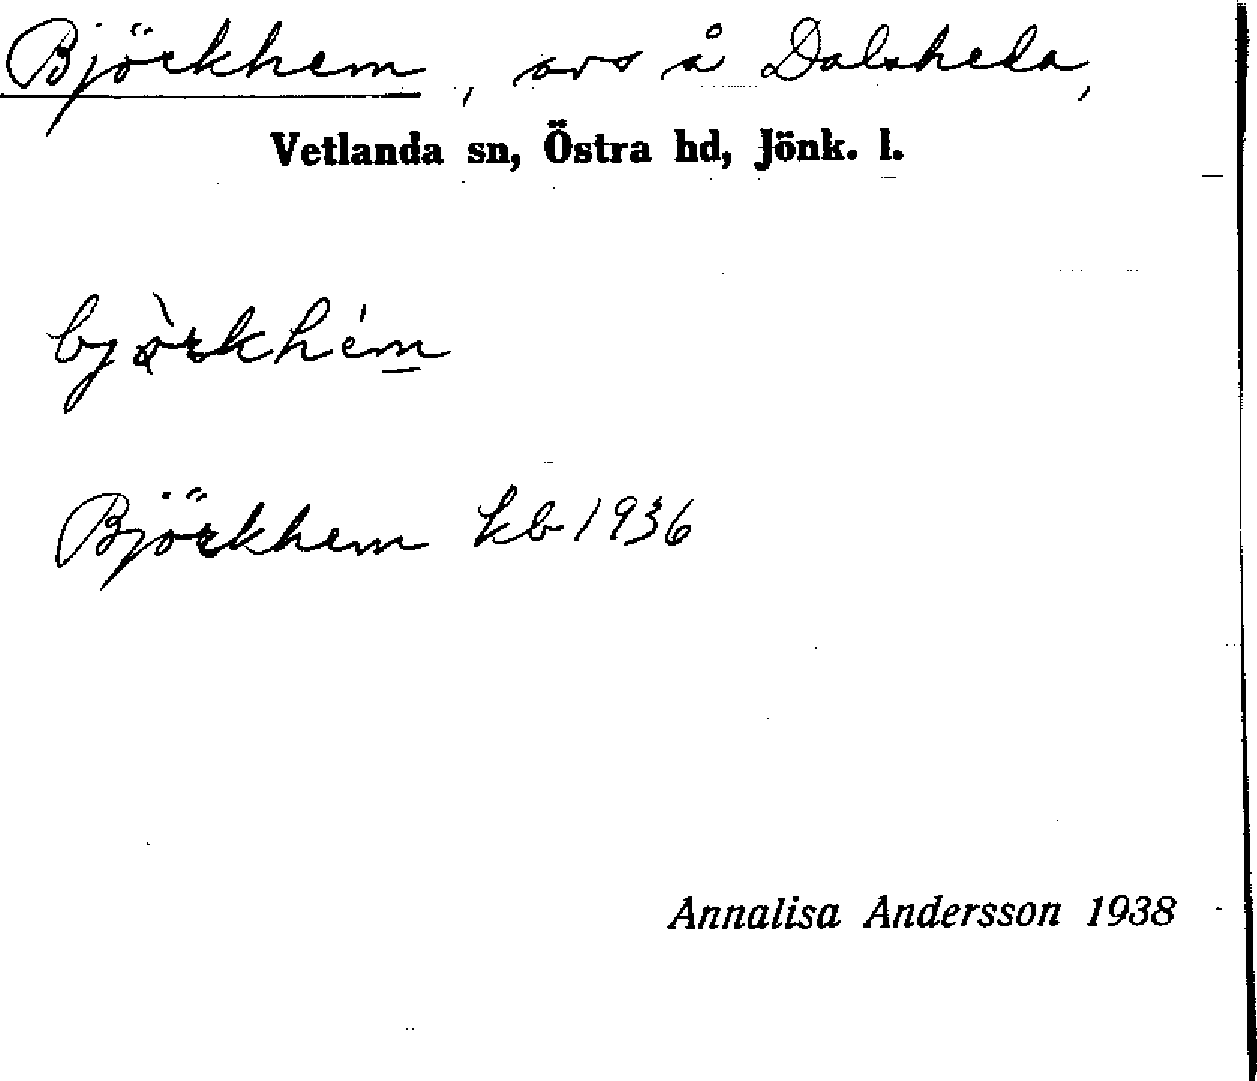 Björkhem, avs å Dalaheda,
Vetlanda sn, Östra hd, Jönk. l.
bjòrkhém
Björkhem kb 1936
Annalisa Andersson 1938